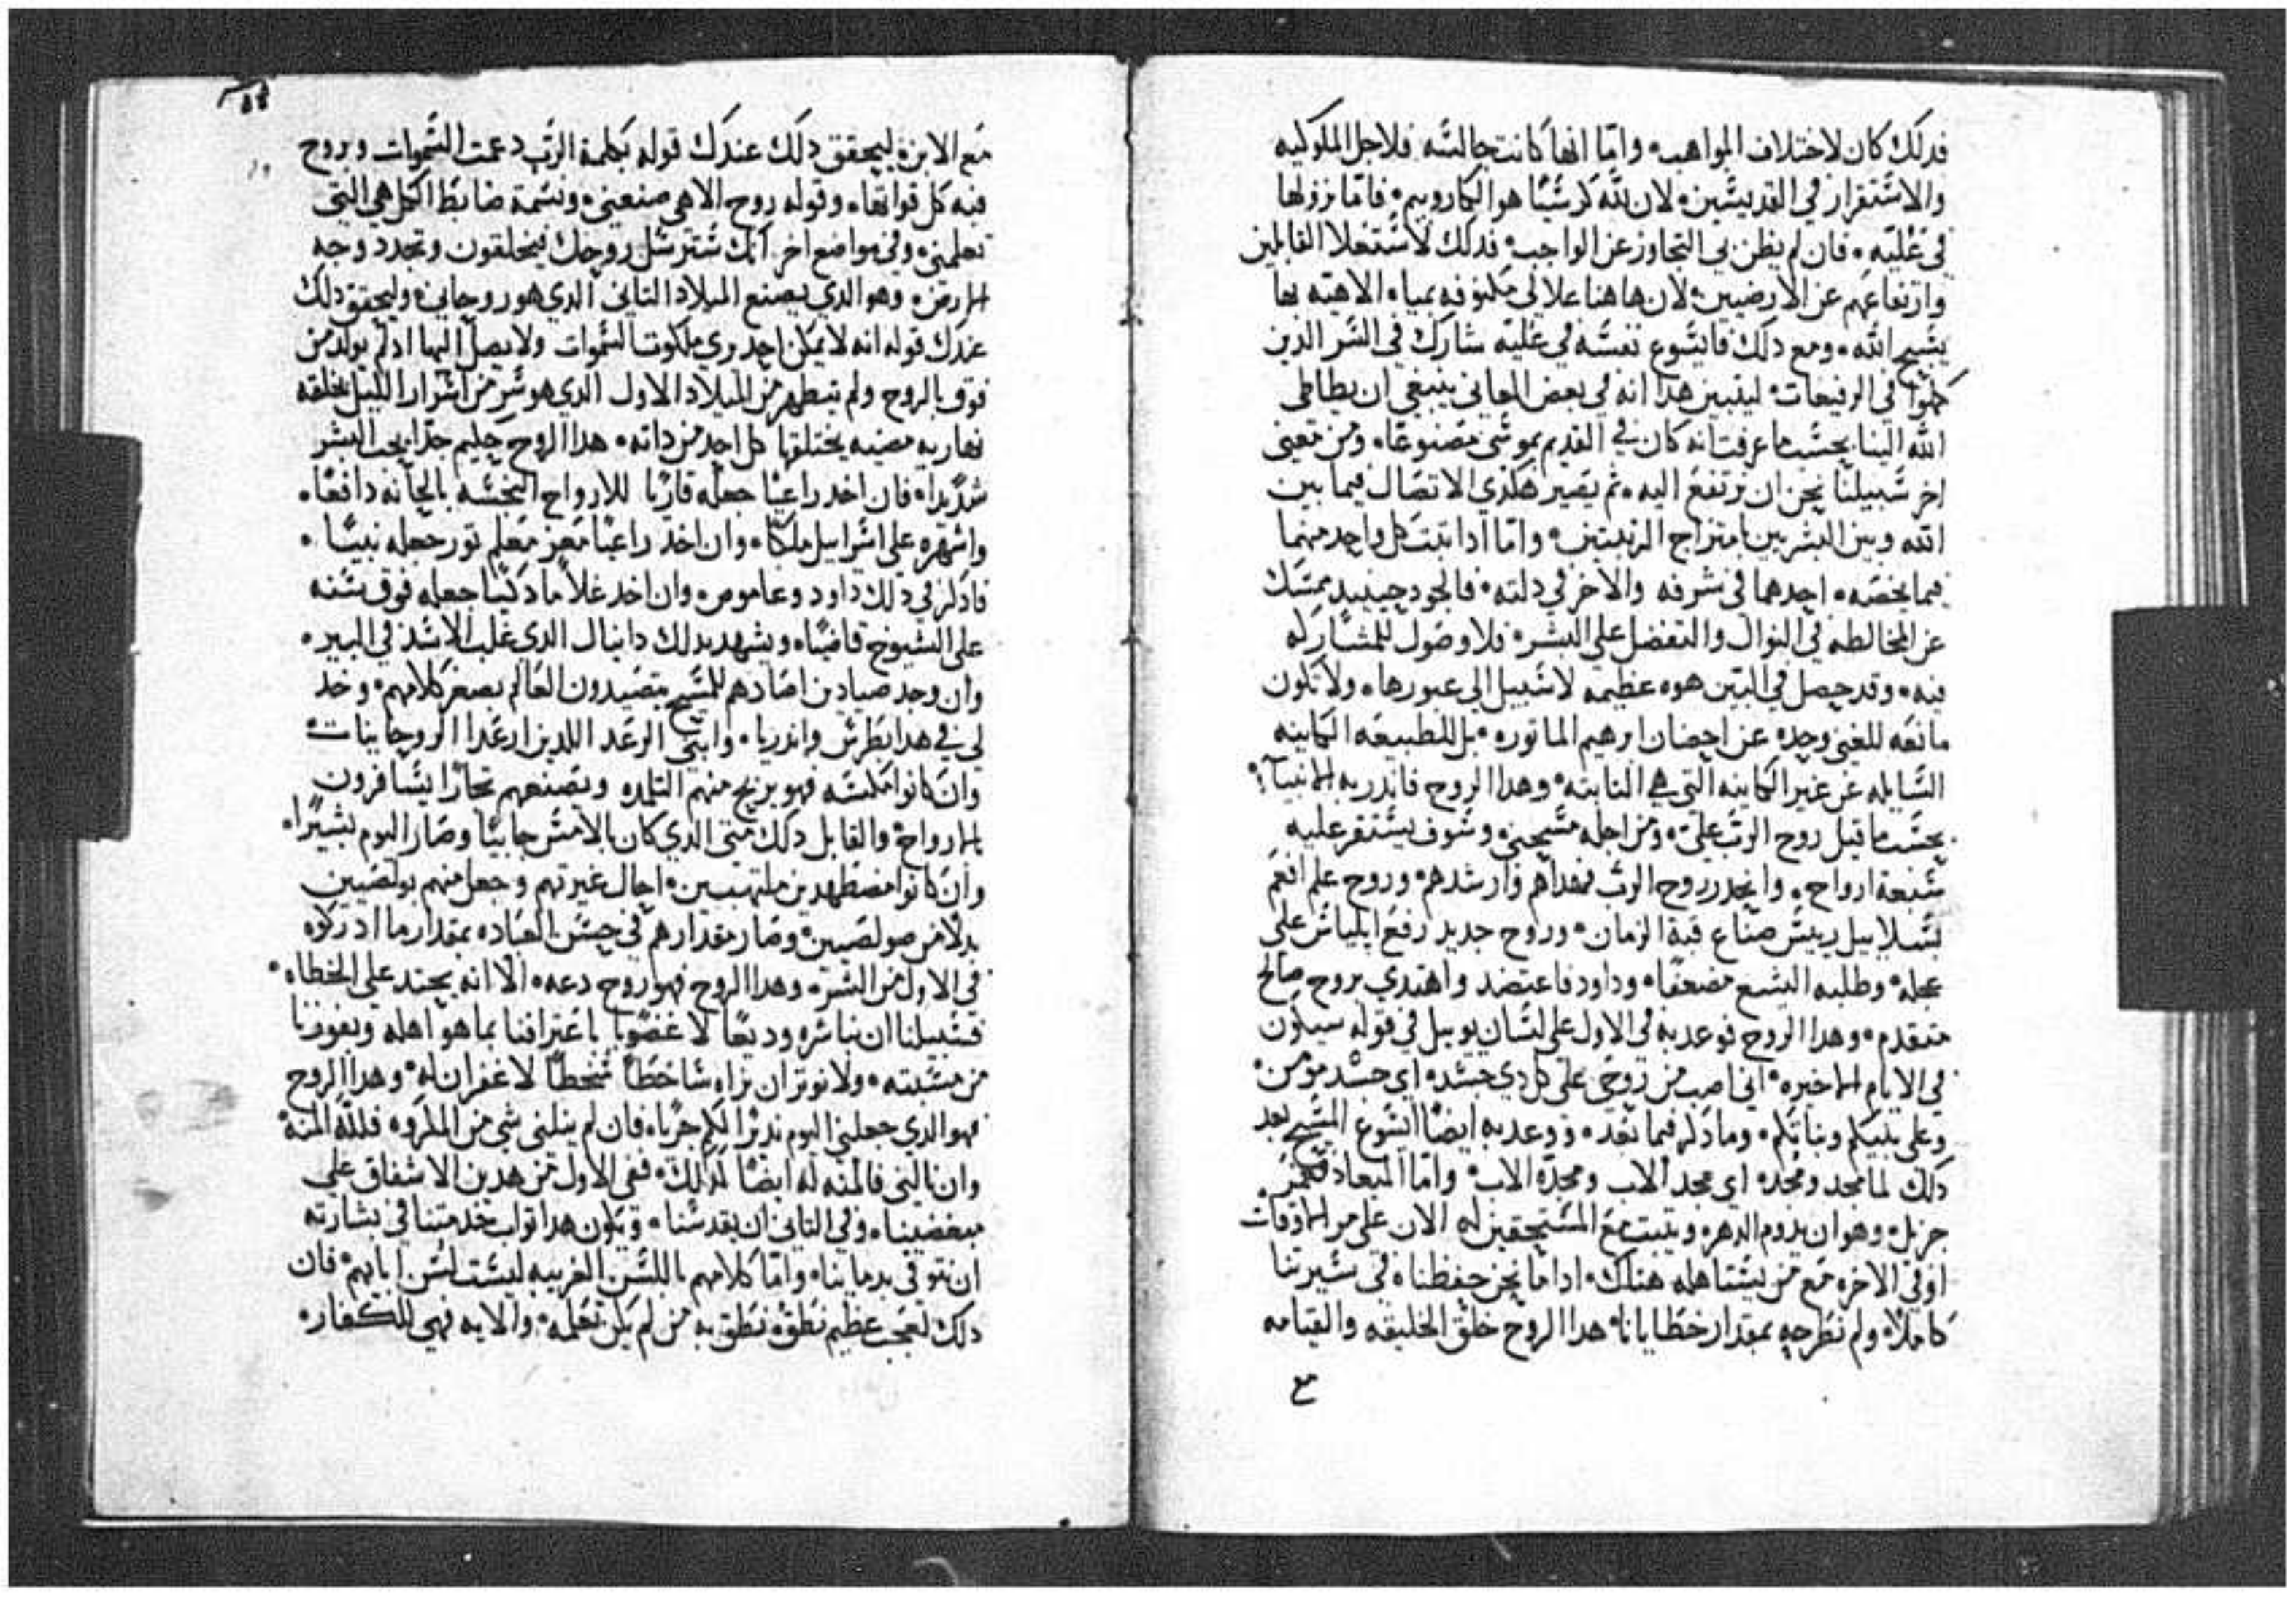 فدلك كان لاختلاف المواهب، واما انها كانت جالسه فلاجل الملوكيه
والاستقرار في القديسين، لان لله كرسيا هو الكاروبيم، فاما نزولها
في عليه، فان لم يظن بي التجاوز عن الواجب، فدلك لاستعلا القابلين
وارتفاعهم عن الارضيين، لان هاهنا علالي مكنوفه بمياه الاهيه بها
يسبح الله، ومع دلك فايسوع نفسه في عليه شارك في السر الدين
كملوا في الرفيعات، ليتبين هدا انه في بعض المعاني ينبغي ان يطاطى
الله الينا بحسب ما عرفت انه كان في القديم بموسى مصنوعا، ومن معنى
اخر سبيلنا نحن ان نرتفع اليه، تم يصير هكدي الاتصال فيما بين
الله وبين البشريين بامتزاج الرتبتين، واما ادا تبت كل واحد منهما
فيما يخصه، احدهما في شرفه والاخر في دلته، فالجود حينيد ممسك
عن المخالطه في النوال والتفضل على البشر، فلا وصول للمشاركه
فيه، وقد حصل في البين هوه عظيمه لا سبيل الى عبورها، ولا تكون
مانعه للغني وحده عن احضان ابرهيم الماتوره، بل للطبيعه الكاينه
السايله عن غير الكاينه التي هي التابته، وهدا الروح فاندر به الانبيا،
بحسب ما قيل روح الرب علي، ومن اجله مسحني وسوف يستقر عليه
سبعة ارواح، وانحدر روح الرب فهداهم وارشدهم، وروح علم افعم
بسلاييل رييس صناع قبة الزمان، وروح جديد رفع ايلياس على
عجله، وطلبه اليشع مضعفا، وداود فاعتضد واهتدي بروح صالح
متقدم، وهدا الروح توعد به في الاول على لسان يوييل في قوله سيكون
في الايام الاخيره، اني اصب من روحي على كل دي جسد، اي جسد مومن،
وعلى بنيكم وبناتكم، وما دكر فيما بعد، ووعد به ايضا ايسوع المسيح بعد
دلك لما مجد ومجد، اي مجد الاب ومجده الاب، واما الميعاد فكمتر
جزيل، وهو ان يدوم الدهر، ويتبت مع المستحقين له الان على مر الاوقات
اوفي الاخره مع من يستاهله هناك، ادا ما نحن حفظناه في سيرتنا
كاملا، ولم نطرحه بمقدار خطايانا، هدا الروح خلق الخليقه والقيامه
مع
مع الابن، ليحقق دلك عندك قوله بكلمة الرب دعمت السموات وبروح
فيه كل قواتها، وقوله روح الاهي صنعني، ونسمة ضابط الكل هي التي
تعلمني، وفي مواضع اخر، انك سترسل روحك فيخلقون وتجدد وجه
الارض، وهو الدي يصنع الميلاد التاني الدي هو روحاني، وليحقق دلك
عندك قوله انه لا يمكن احد يري ملكوت السموات ولا يصل اليها اد لم يولد من
فوق بالروح ولم يتطهر من الميلاد الاول الدي هو سر من اسرار الليل بخلقه
نهاريه مضيه يختلقها كل احد من داته، هدا الروح حليم جدا يحب البشر
شديدا، فان اخد راعيا جعله قاريا للارواح النجسه بالحانه دافعا،
واشهره على اسراييل ملكا، وان اخد راعيا معز مفلح توت جعله نبيا،
فادكر في دلك داود وعاموص، وان اخد غلاما دكيا جعله فوق سنه
على الشيوخ قاضيا، ويشهد بدلك دانيال الدي غلب الاسد في البير،
وان وجد صيادين اصادهم للمسيح يتصيدون العالم بصغر كلامهم، وخد
لي في هدا بطرس واندريا، وابني الرعد اللدين ارعدا الروحانيات،
وان كانوا مكسه فهو يربح منهم التلمده ويصنعهم تجارا يسافرون
بالارواح، والقايل دلك متى الدي كان بالامس جابيا وصار اليوم بشيرا،
وان كانوا مضطهدين ملتهبين، احال غيرتهم وجعل منهم بولصيين
بدلا من صولصيين، وصار مقدارهم في حسن العباده بمقدار ما ادركوه
في الاول من الشر، وهدا الروح فهو روح دعه، الا انه يحتد على الخطاه،
فسبيلنا ان نباشره وديعا لا غضوبا باعترافنا بما هو اهله ويفوزنا
من مشيته، ولا نوتر ان نراه ساخطا سخطا لا غفران له، وهدا الروح
فهو الدي جعلني اليوم نديرا لكم جريا، فان لم ينلني شي من المكروه فلله المنه
وان نالني فالمنه له ايضا كدلك، ففي الاول من هدين الاشفاق على
مبغضينا، وفي التاني ان يقدسنا، ويكون هدا تواب خدمتنا في بشارته
ان نتوفى بدماينا، واما كلامهم باللسن الغريبه ليست لسن ابايهم، فان
دلك لعجب عظيم نطق، نطق به من لم يكن تعلمه، والايه فهي للكفار،